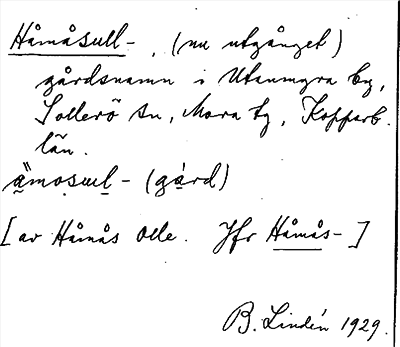 Håmåsull-, (nu utgånget)
gårdsnamn i Utanmyra by,
Sollerö sn, Mora tg, Kopparb.
län.
ä̀moşuul- (gård)
[av Håmås Olle. Jfr Håmås-]
B. Lindén 1929.